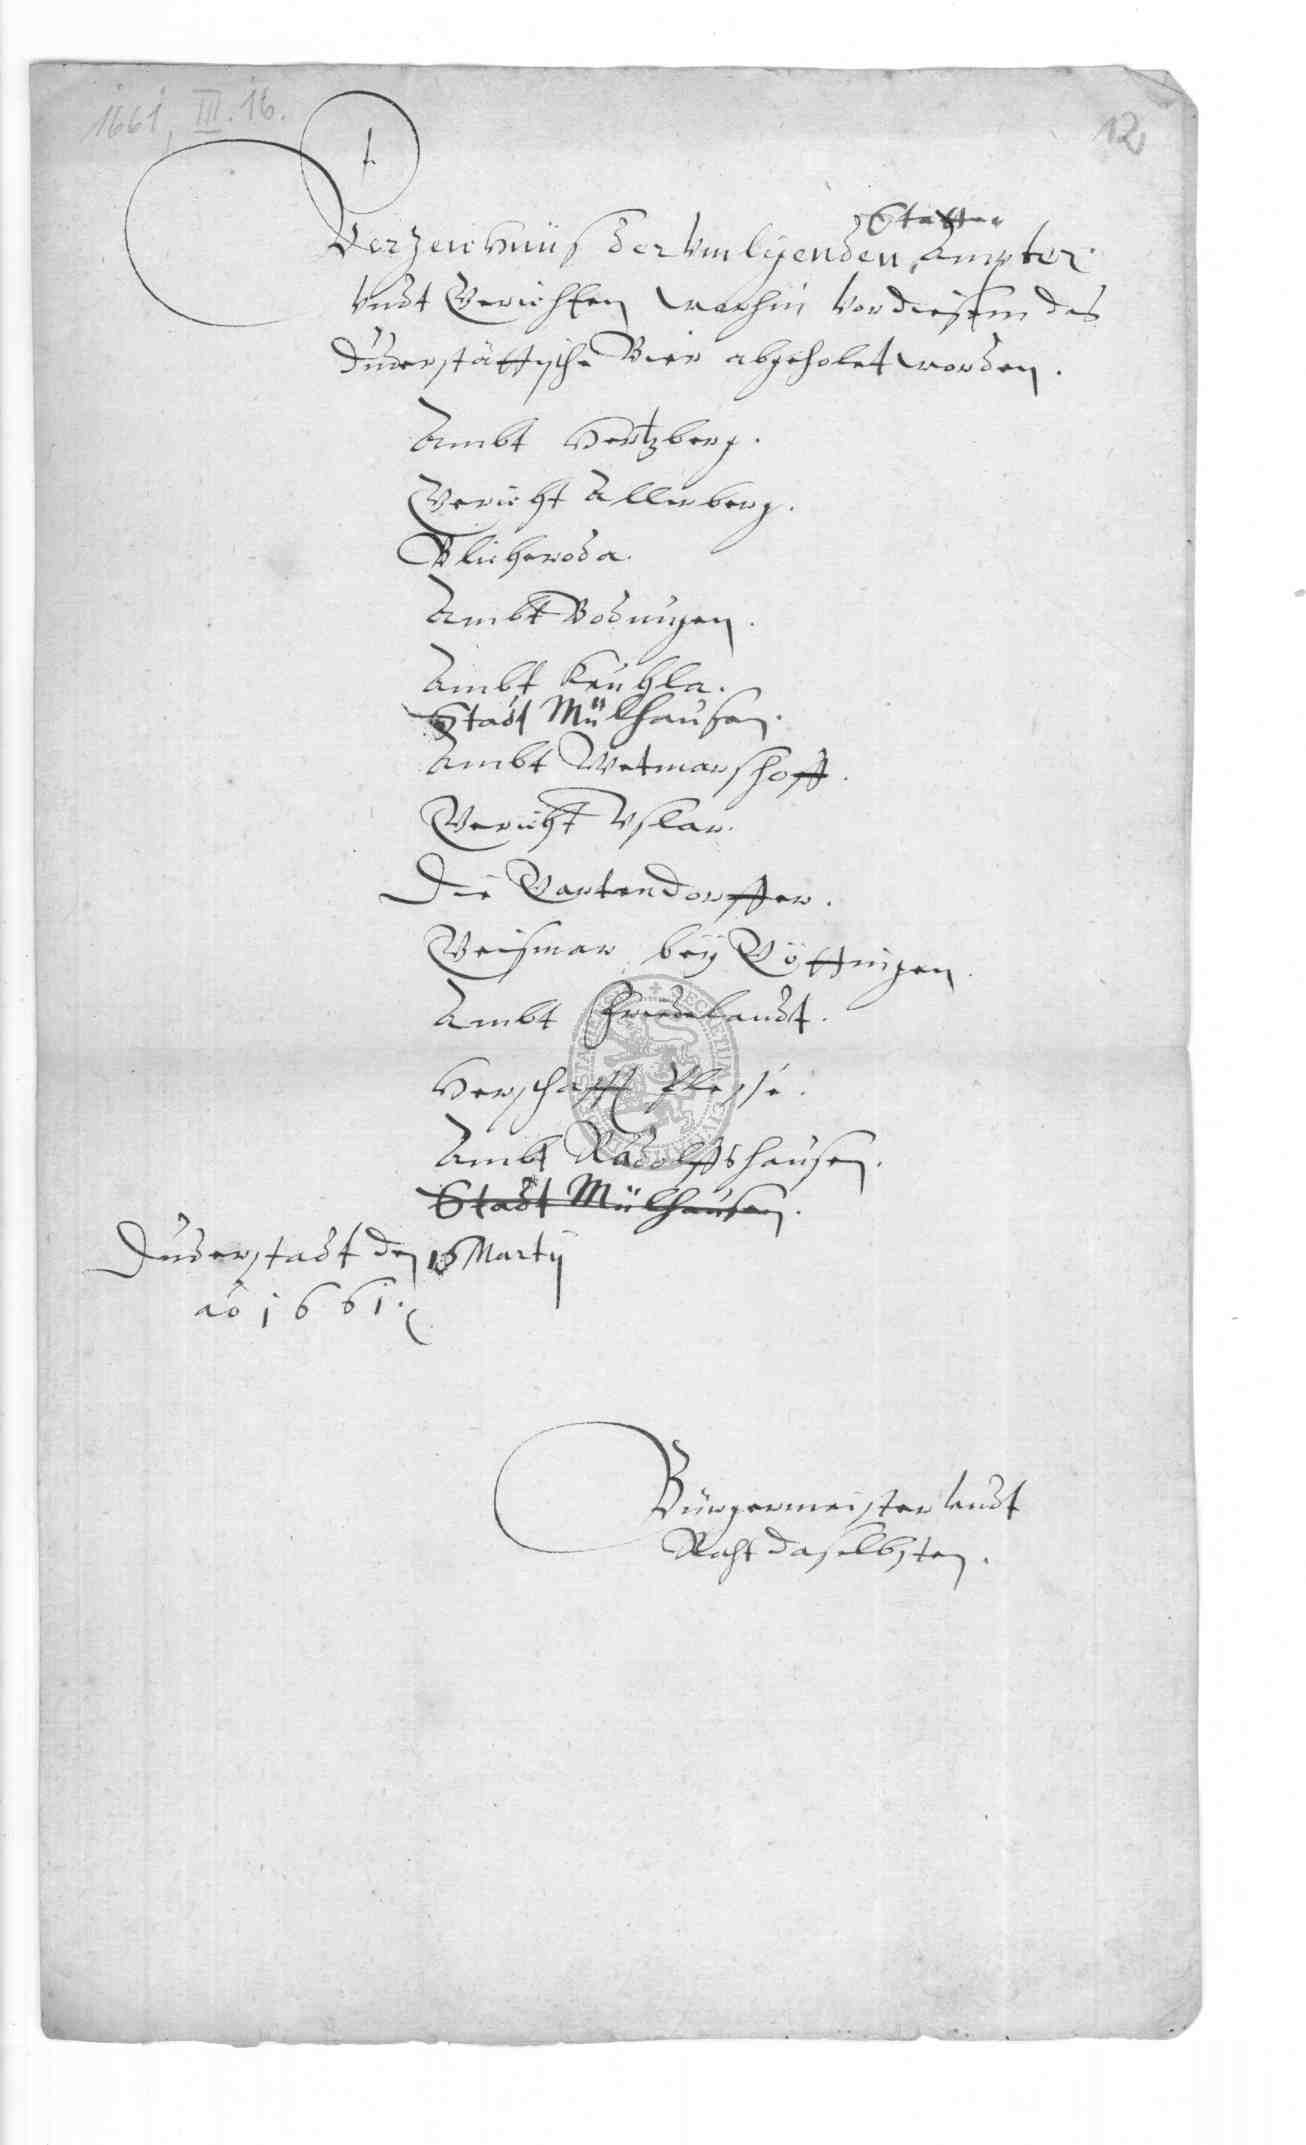 1661, III. 16.
12
Stätte
Verzeichnüs der Umligenden Ämpter
undt Gerichten, wohin vor diesem das
Duderstättische Bier abgeholet worden.
Ambt Hertzberg.
Gericht Allerberg.
Blicheroda.
Ambt Bodungen.
Ambt Keuhla.
Stadt Mülhausen.
Ambt Wetmarshoff.
Gericht Uslar.
Die Gartendorffer.
Geismar bey Göttingen.
Ambt Friedelandt.
Herschafft Plesse.
Ambt Radolffshausen.
Stadt Mülhausen.
Duderstadt den 16 Martij
ao 1661.
Bürgermeister undt
Raht daselbsten.